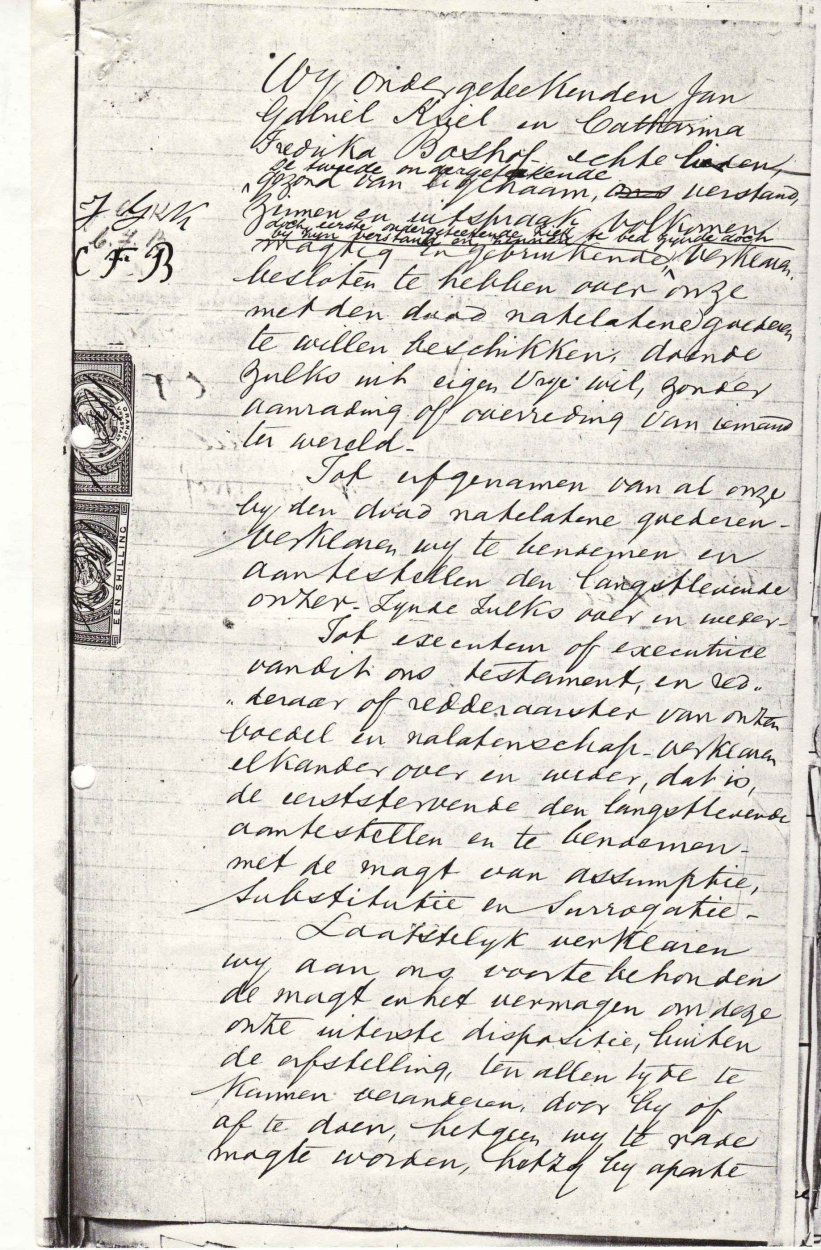 Wy, ondergeteekenden Jan
Gabriel Kriel en Catharina
Fredrika Boshof echte lieden,
de tweede ondergetekende
gezond van ligchaam, ons verstand,
zinnen en uitspraak volkomen
doch eerste ondergeteekende ziek te bed zynde doch
by zyn verstand en zinnen
magtig en gebruikende, verklaren
besloten te hebben over onze
met den dood natelatene goederen
te willen beschikken, doende
zulks uit eigen vrye wil, zonder
aanrading of overreding van iemand
ter wereld.
Tot erfgenamen van al onze
by den dood natelatene goederen
verklaren wy te benoemen en
aantestellen den langstlevende
onzer. Zynde zulks over en weder.
Tot executeur of executrice
van dit ons testament, en red„
„deraar of redderaarster van onzen
boedel en nalatenschap verklaren
elkander over en weder, dat is,
de eerststervende den langstlevende
aantestellen en te benoemen
met de magt van assumptie,
substitutie en surrogatie.
Laatstelyk verklaren
wy aan ons voorte behouden
de magt en het vermogen om deze
onze uiterste dispositie, buiten
de erfstelling, ten allen tyde te
kunnen veranderen, door by of
af te doen, hetgeen wy te rade
mogte worden, hetzy by aparte
J G K
C F B
EEN SHILLING